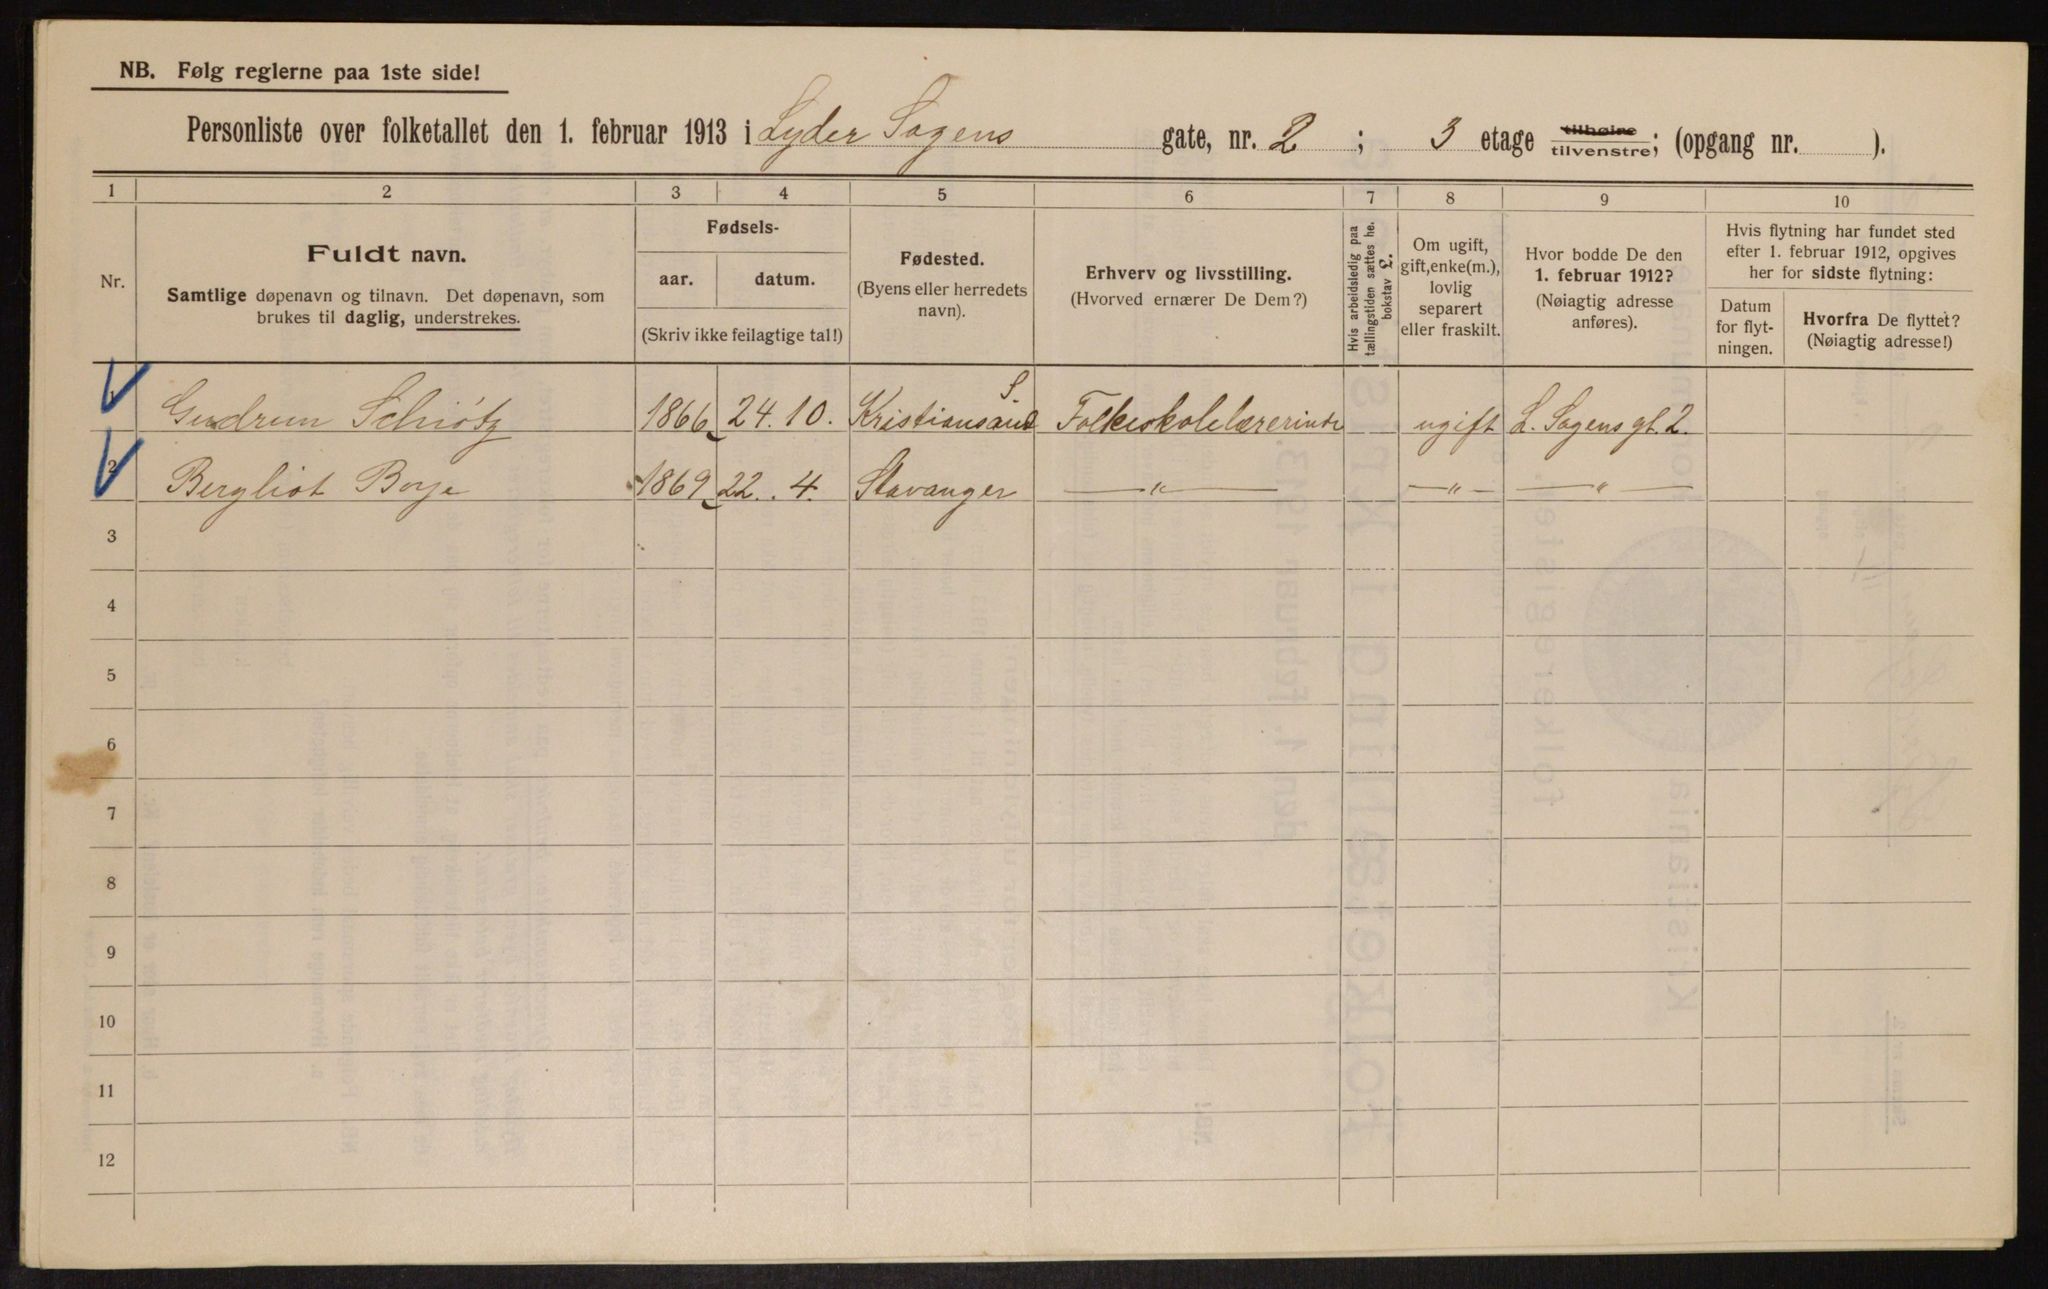 NB. Følg reglerne paa 1ste side!
Personliste over folketallet den 1. februar 1913 i Lyder Sagens gate, nr. 2 ; 3 etage tilhøire tilvenstre; (opgang nr. ).
1 2 3 4 5 6 7 8 9 10
Nr.
Fuldt navn.
Samtlige døpenavn og tilnavn. Det døpenavn, som
brukes til daglig, understrekes.
Fødsels-
aar. datum.
(Skriv ikke feilagtige tal!)
Fødested.
(Byens eller herredets
navn).
Erhverv og livsstilling.
(Hvorved ernærer De Dem?)
Hvis arbeidsledig paa
tællingstiden sættes he.
bokstav L.
Om ugift,
gift, enke(m.),
lovlig
separert
eller fraskilt.
Hvor bodde De den
1. februar 1912?
(Nøiagtig adresse
anføres).
Hvis flytning har fundet sted
efter 1. februar 1912, opgives
her for sidste flytning:
Datum
for flyt-
ningen.
Hvorfra De flyttet?
(Nøiagtig adresse!)
1 Gudrun Schiötz 1866 24.10. Kristiansand S. Folkeskolelærerinde ugift L. Sagens gt. 2.
2 Bergliot Borje 1869 22. 4. Stavanger — " — — " — — " —
3
4
5
6
7
8
9
10
11
12